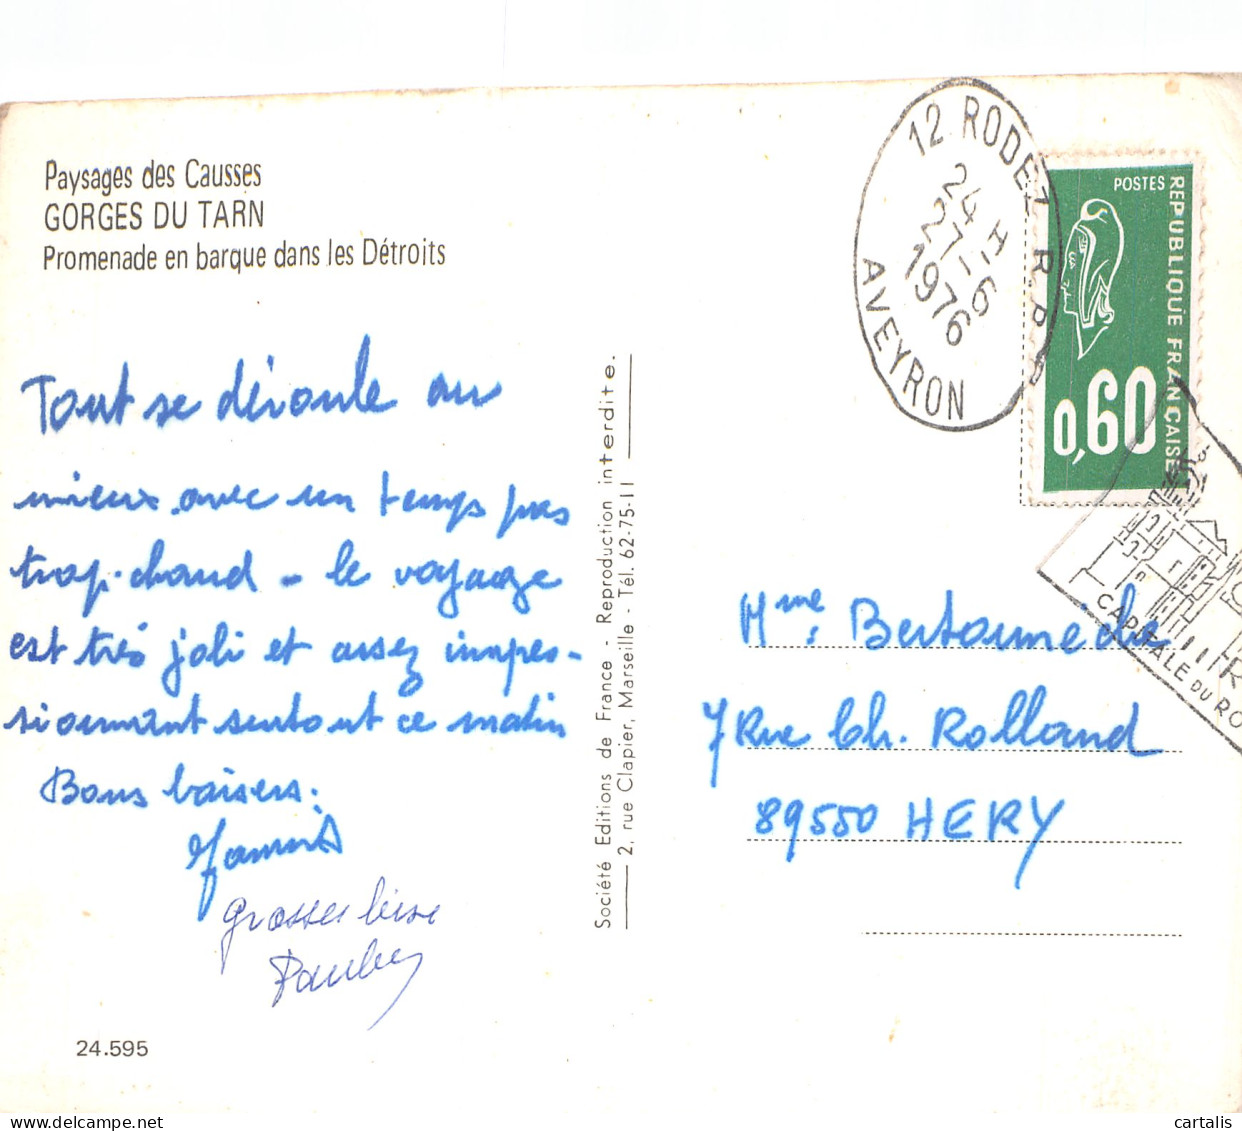 Paysages des Causses
GORGES DU TARN
Promenade en barque dans les Détroits
Tout se déroule au
mieux avec un temps pas
trop chaud - le voyage
est très joli et assez impres-
sionnant surtout ce matin
Bons baisers.
grosses bise
24.595
Société Editions de France - Reproduction interdite.
2, rue Clapier, Marseille - Tél. 62-75-11
12 RODEZ R.P.
24 H
27-6
1976
AVEYRON
POSTES
REPUBLIQUE FRANÇAISE
0,60
CAPITALE DU RO
Mme
7 Rue Ch. Rolland
89550 HERY
cartalis
delcampe.net